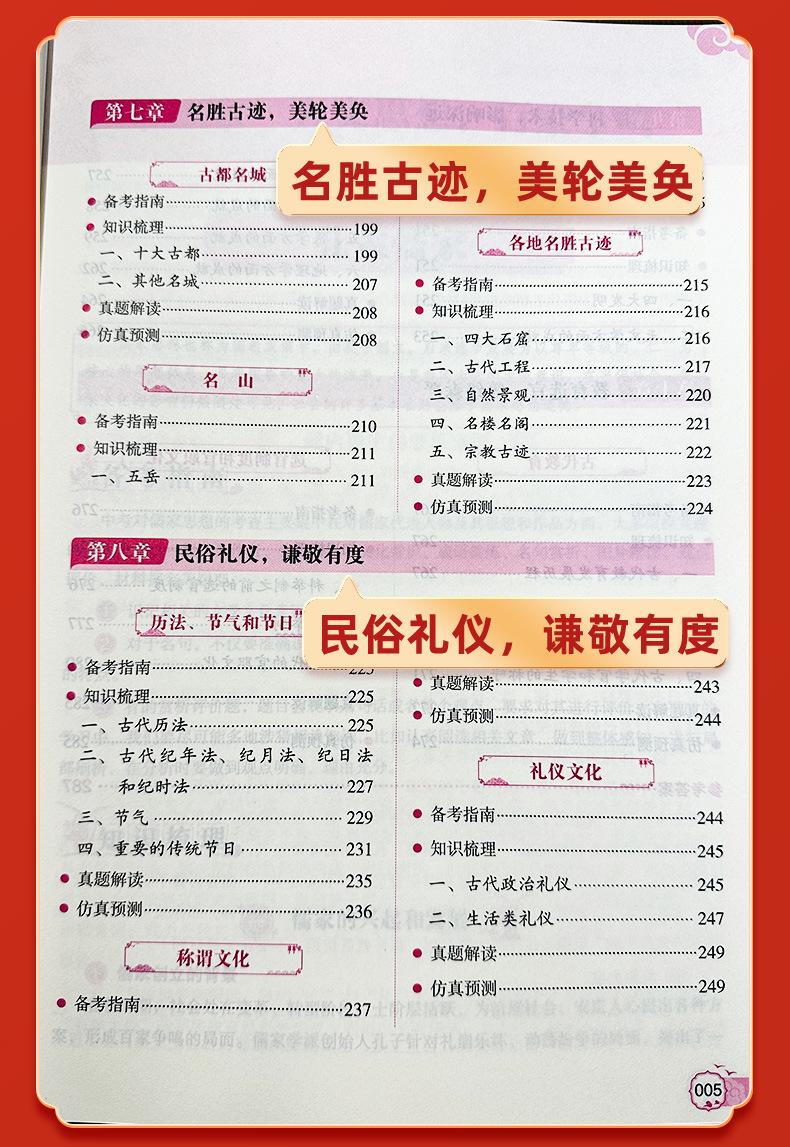 第七章 名胜古迹，美轮美奂
名胜古迹，美轮美奂
古都名城
备考指南
知识梳理 199
一、十大古都 199
二、其他名城 207
真题解读 208
仿真预测 208
名 山
备考指南 210
知识梳理 211
一、五岳 211
各地名胜古迹
备考指南 215
知识梳理 216
一、四大石窟 216
二、古代工程 217
三、自然景观 220
四、名楼名阁 221
五、宗教古迹 222
真题解读 223
仿真预测 224
第八章 民俗礼仪，谦敬有度
民俗礼仪，谦敬有度
历法、节气和节日
备考指南
知识梳理 225
一、古代历法 225
二、古代纪年法、纪月法、纪日法
和纪时法 227
三、节气 229
四、重要的传统节日 231
真题解读 235
仿真预测 236
称谓文化
备考指南 237
真题解读 243
仿真预测 244
礼仪文化
备考指南 244
知识梳理 245
一、古代政治礼仪 245
二、生活类礼仪 247
真题解读 249
仿真预测 249
005